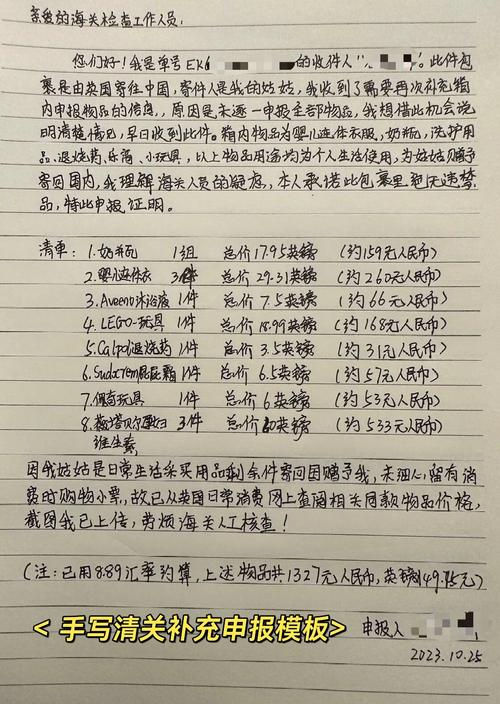 亲爱的海关检查工作人员:
您们好!我是单号EK6 的收件人" ".此件包
裹是由英国寄往中国,寄件人是我的姑姑,我收到了需要再次补充箱
内申报物品的信息,原因是未逐一申报全部物品,我想借此机会说
明清楚情况,早日收到此件。箱内物品为婴儿连体衣服,奶瓶,洗护用
品、退烧药、乐高、小玩具,以上物品用途均为个人生活使用,为姑姑赠予
寄回国内,我理解海关人员的疑虑,本人承诺此包裹里绝无违禁
品,特此申报证明。
清单: 1.奶瓶 1组 总价17.95英镑 (约159元人民币)
2.婴儿连体衣 3件 总价29.31英镑 (约260元人民币)
3.Aveeno沐浴液 1件 总价7.5英镑 (约66元人民币)
4.LEGO-玩具 1件 总价18.99英镑 (约168元人民币)
5.Calpol退烧药 1件 总价3.5英镑 (约31元人民币)
6.Sudocrem屁屁霜 1件 总价6.5英镑 (约57元人民币)
7.佩奇玩具 1件 总价6英镑 (约53元人民币)
8.薇塔贝尔孕妇 3件 总价60英镑 (约533元人民币)
维生素,
因我姑姑是日常生活采买用品剩余件寄回国赠予我,未细心留有消
费时购物小票,故已从英国日常消费网上查阅相关同款物品价格,
截图我已上传,劳烦海关人工核查!
(注:已用8.89汇率约算,上述物品共1327元人民币,英镑149.75元)
<手写清关补充申报模板>
申报人
2023.10.25